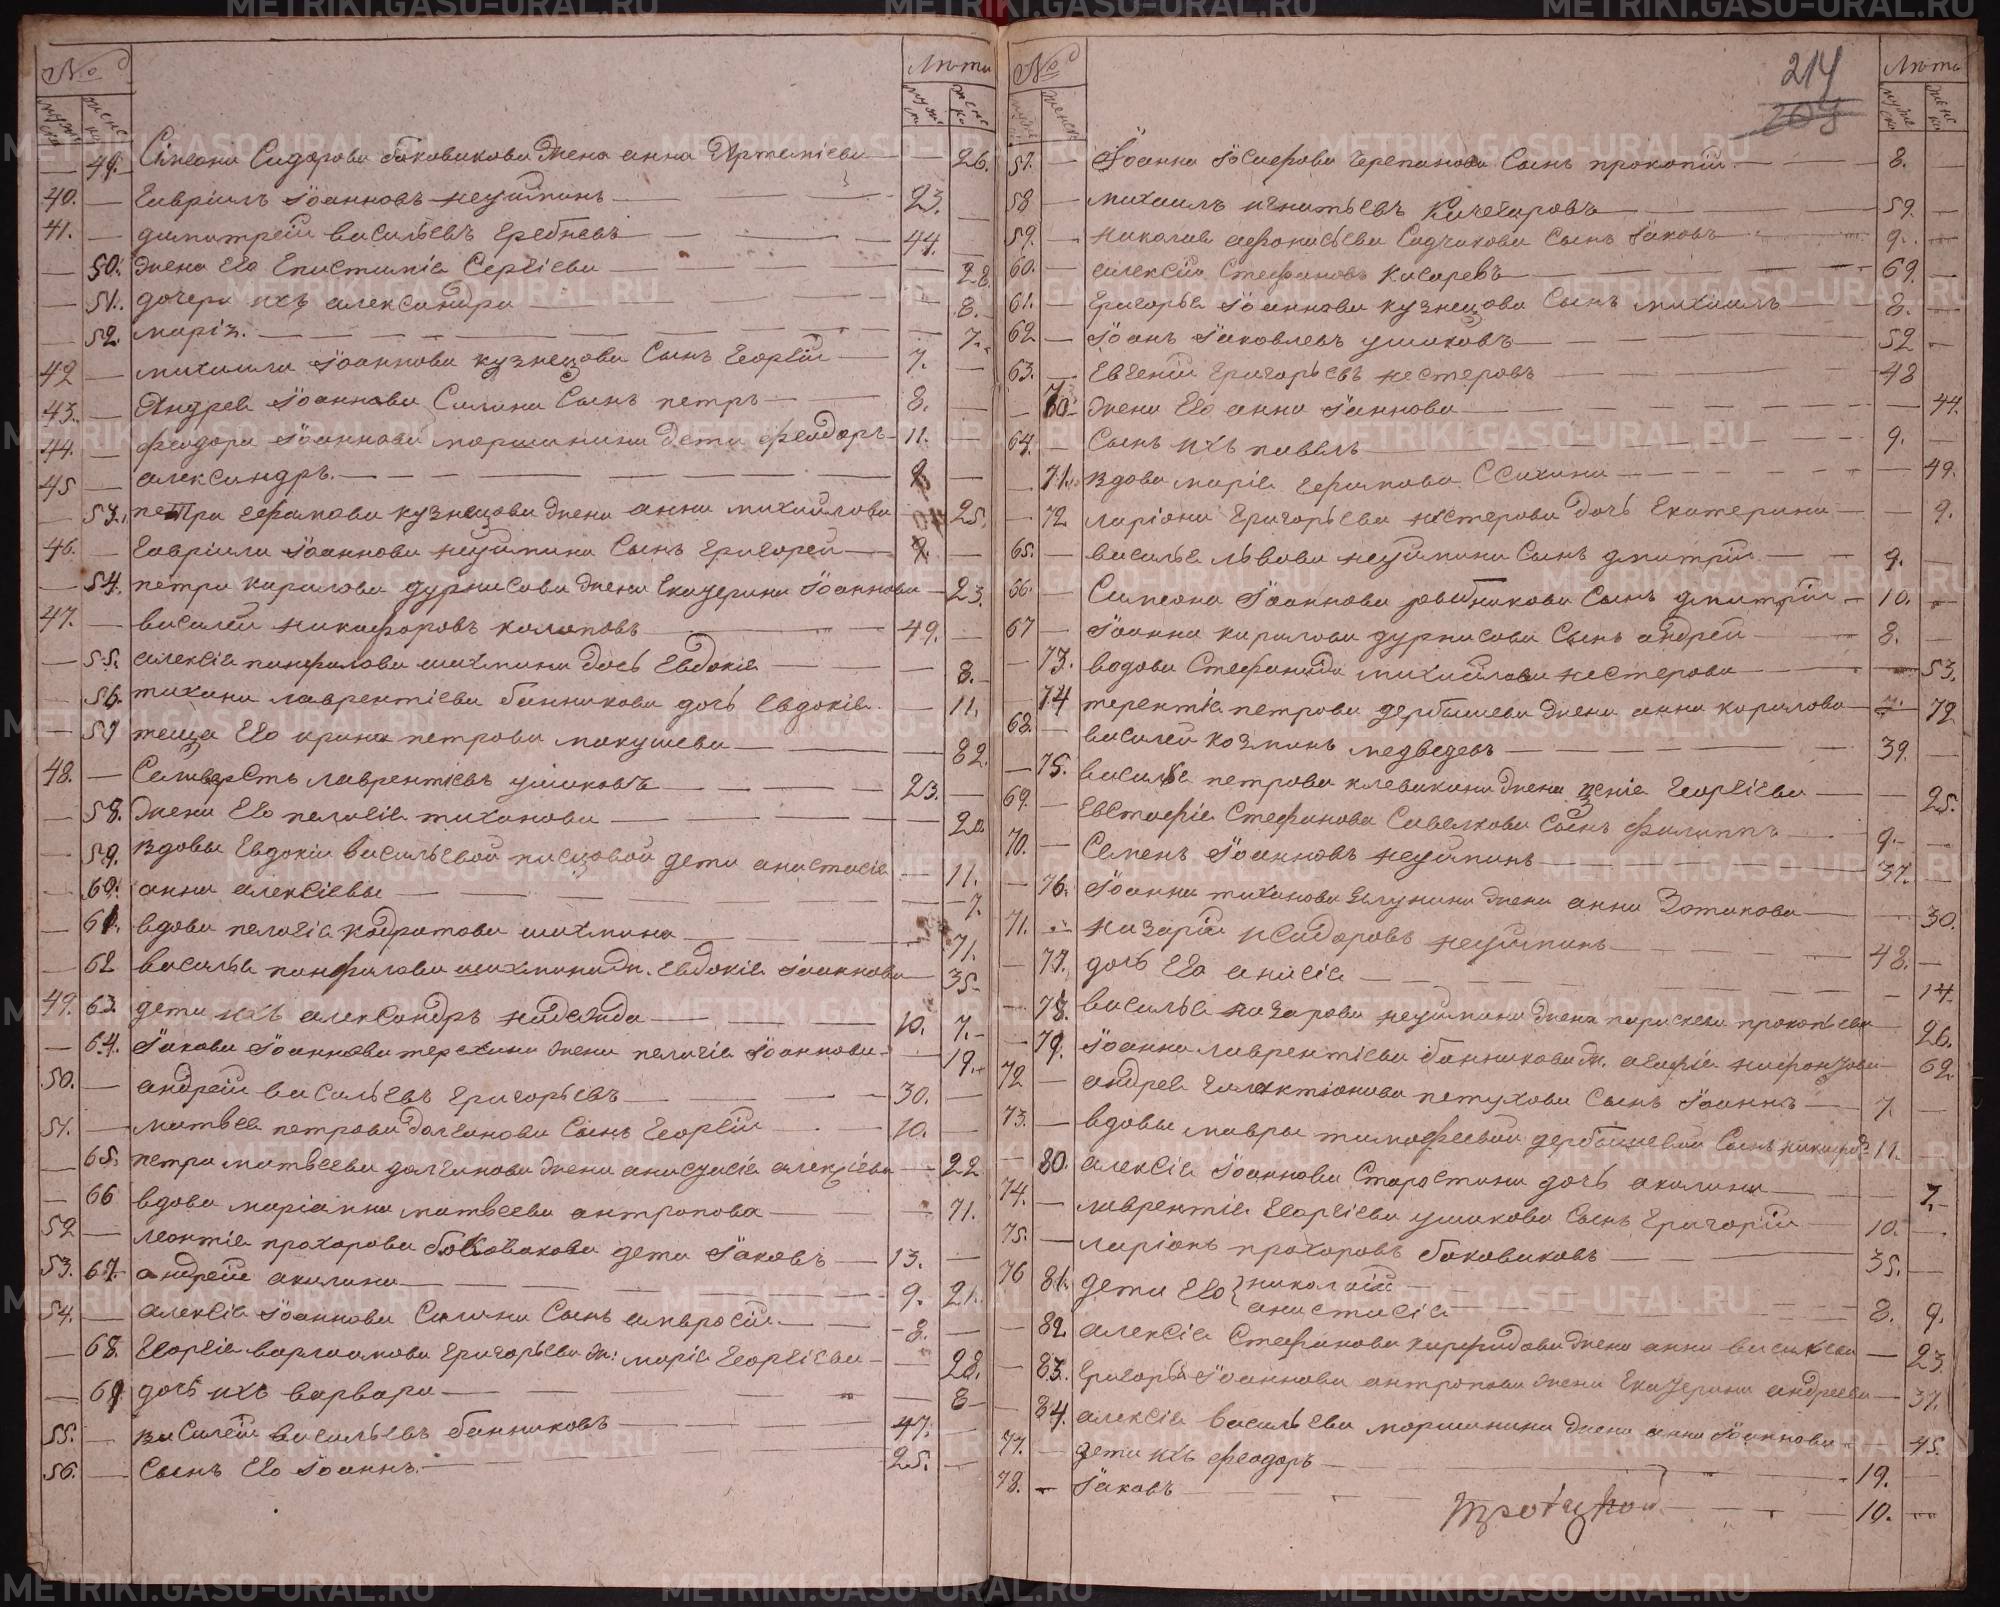 №
Лѣта
49. Симеона Сидорова боковикова Жена анна Артемиева 26.
40. Гавріилъ Іоанновъ неуйминъ 23.
41. димитрей васильевъ Гребневъ 44.
50. Жена Его Епистимія Сергіева 28.
51. дочери ихъ александра 8.
52. марія. 7.
42 михаила Іоаннова кузнецова Сынъ Георгій 7.
43. Андрея Іоаннова Силина Сынъ петръ 8.
44. феодора Іоаннова моршинина дети феодоръ 11.
45 александръ.
53. петра ефимова кузнецова Жена анна михайлова 25.
46. Гавріила Іоаннова неуймина Сынъ Григорей 9.
54. петра кирилова дурнисова Жена Екатерина Іоаннова 23.
47. василей никифоровъ 49.
55. алексія панфилова шихмина дочь Евдокія 8.
56. тихана лаврентіева банникова дочь Евдокія 11.
57 теща Его ирина петрова макушева 82.
48. Силиверстъ лаврентіевъ ушаковъ 23.
58. Жена Его пелагія тиханова 20
59. вдовы Евдокіи васильевой писцовой дети анастасія 11.
60. анна алексіевы 7.
61. вдова пелагія кодратова шихмина 71.
62 василья панфилова шихмина ж. Евдокія Іоаннова 35.
49. 63. дети ихъ александръ надежда 10. 7.
64. Іакова Іоаннова терехина Жена пелагія Іоаннова 19.
50. андрей васильевъ Григорьевъ 30.
51. матвея петрова долганова Сынъ Георгій 10.
65. петра матвеева долганова Жена анастасія алексіева 22
66 вдова маріамна матвеева антропова 71.
52 леонтія прохорова боковикова дети Іаковъ 13.
53. 67. андрей акилина 9. 21.
54. алексія Іоаннова Силина Сынъ амвросій 8.
68. Георгія варлаамова Григорьева ж: марія Георгіева 28.
69 дочь ихъ варвара 8
55. василей васильевъ банниковъ 47.
56. Сынъ Его Іоаннъ. 25.
№
214
209
Лѣта
57. Іоанна Іосифова Черепанова Сынъ прокопій 8.
58 михаилъ игнатьевъ Кичегаровъ 59.
59. николая афонасьева Садчикова Сынъ Іаковъ 9.
60. алексій Стефановъ кисаревъ 69.
61. Григорья Іоаннова кузнецова Сынъ михаилъ 8.
62 Іоанъ Іаковлевъ ушаковъ 52
63. Евгеній Григорьевъ нестеровъ 48
70. Жена Его анна Іаннова 44.
64. Сынъ ихъ павелъ 9.
71. вдова марія ефимова 49.
72 ларіона Григорьева нестерова дочь Екатерина 9.
65. василья львова неуймина Сынъ дмитрій 9.
66. Симеона Іоаннова Сынъ дмитрій 10.
67 Іоанна кирилова дурнисова Сынъ андрей 8.
73. вдова Стефанида михайлова нестерова 53.
74 терентія петрова дербышева Жена анна кирилова 72
68. василей козминъ медведевъ 39.
75. василья петрова клевакина Жена Георгіева 25.
69. Евстафія Стефанова Савелкова Сынъ филиппъ 9.
70. Семенъ Іоанновъ неуйминъ 37.
76. Іоанна тиханова Жена анна Зотикова 30.
71. назарій исидоровъ неуйминъ 48.
77. дочь Его анисія 14.
78. василья назарова неуймина Жена параскева прокопьева 26.
79. Іоанна лаврентіева банникова ж. агафія 62
72 андрея галактіонова петухова Сынъ Іоаннъ 7.
73. вдовы мавры тимофеевой дербышевой Сынъ 11.
80. алексія Іоаннова Старостина дочь акилина 7.
74. лаврентія Георгіева ушакова Сынъ Григорій 10.
75. ларіонъ прохоровъ боковиковъ 35.
76 81. дети Его { николай
анастасія 8. 9.
82. алексія Стефанова Жена анна васильева 23.
83. Григорья Іоаннова антропова Жена Екатерина андреева 37.
84. алексія васильева моршинина Жена анна Іоаннова 45.
77. дети ихъ феодоръ 19.
78. Іаковъ 10.